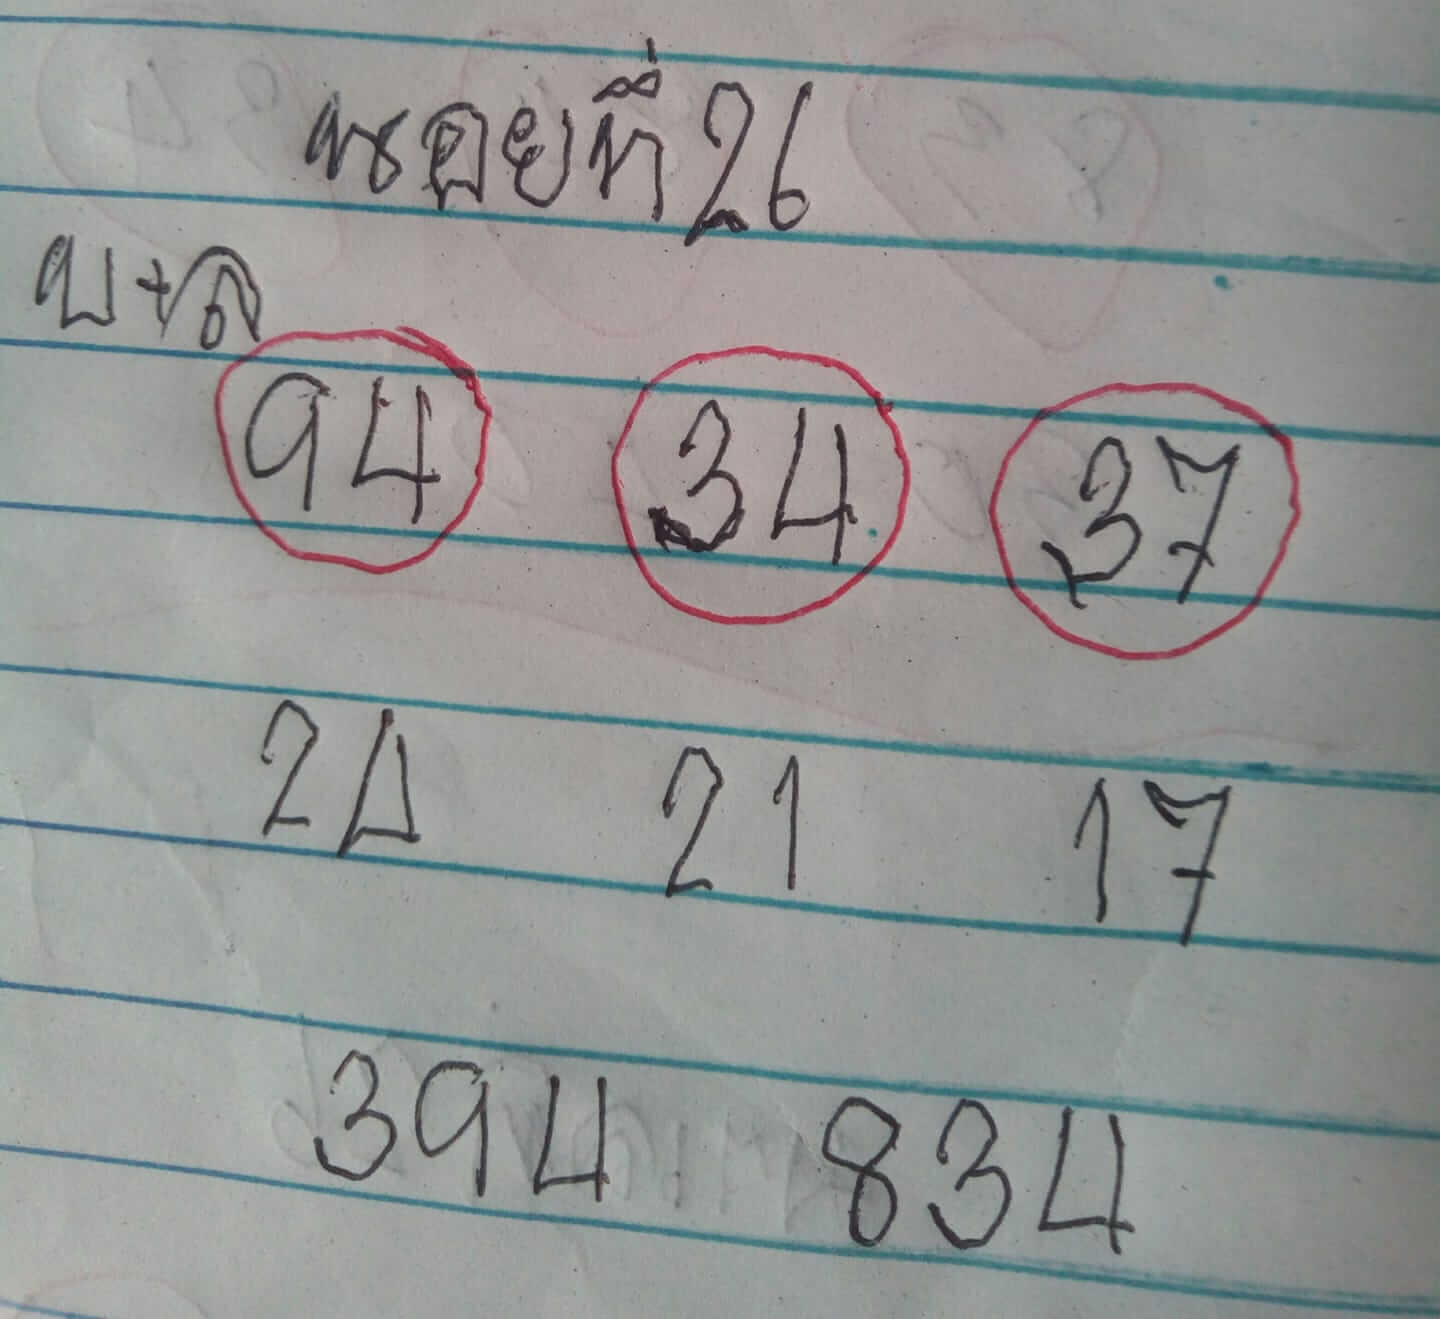 ซอยที่ 26
บ+ล
94 34 37
24 21 17
394 834